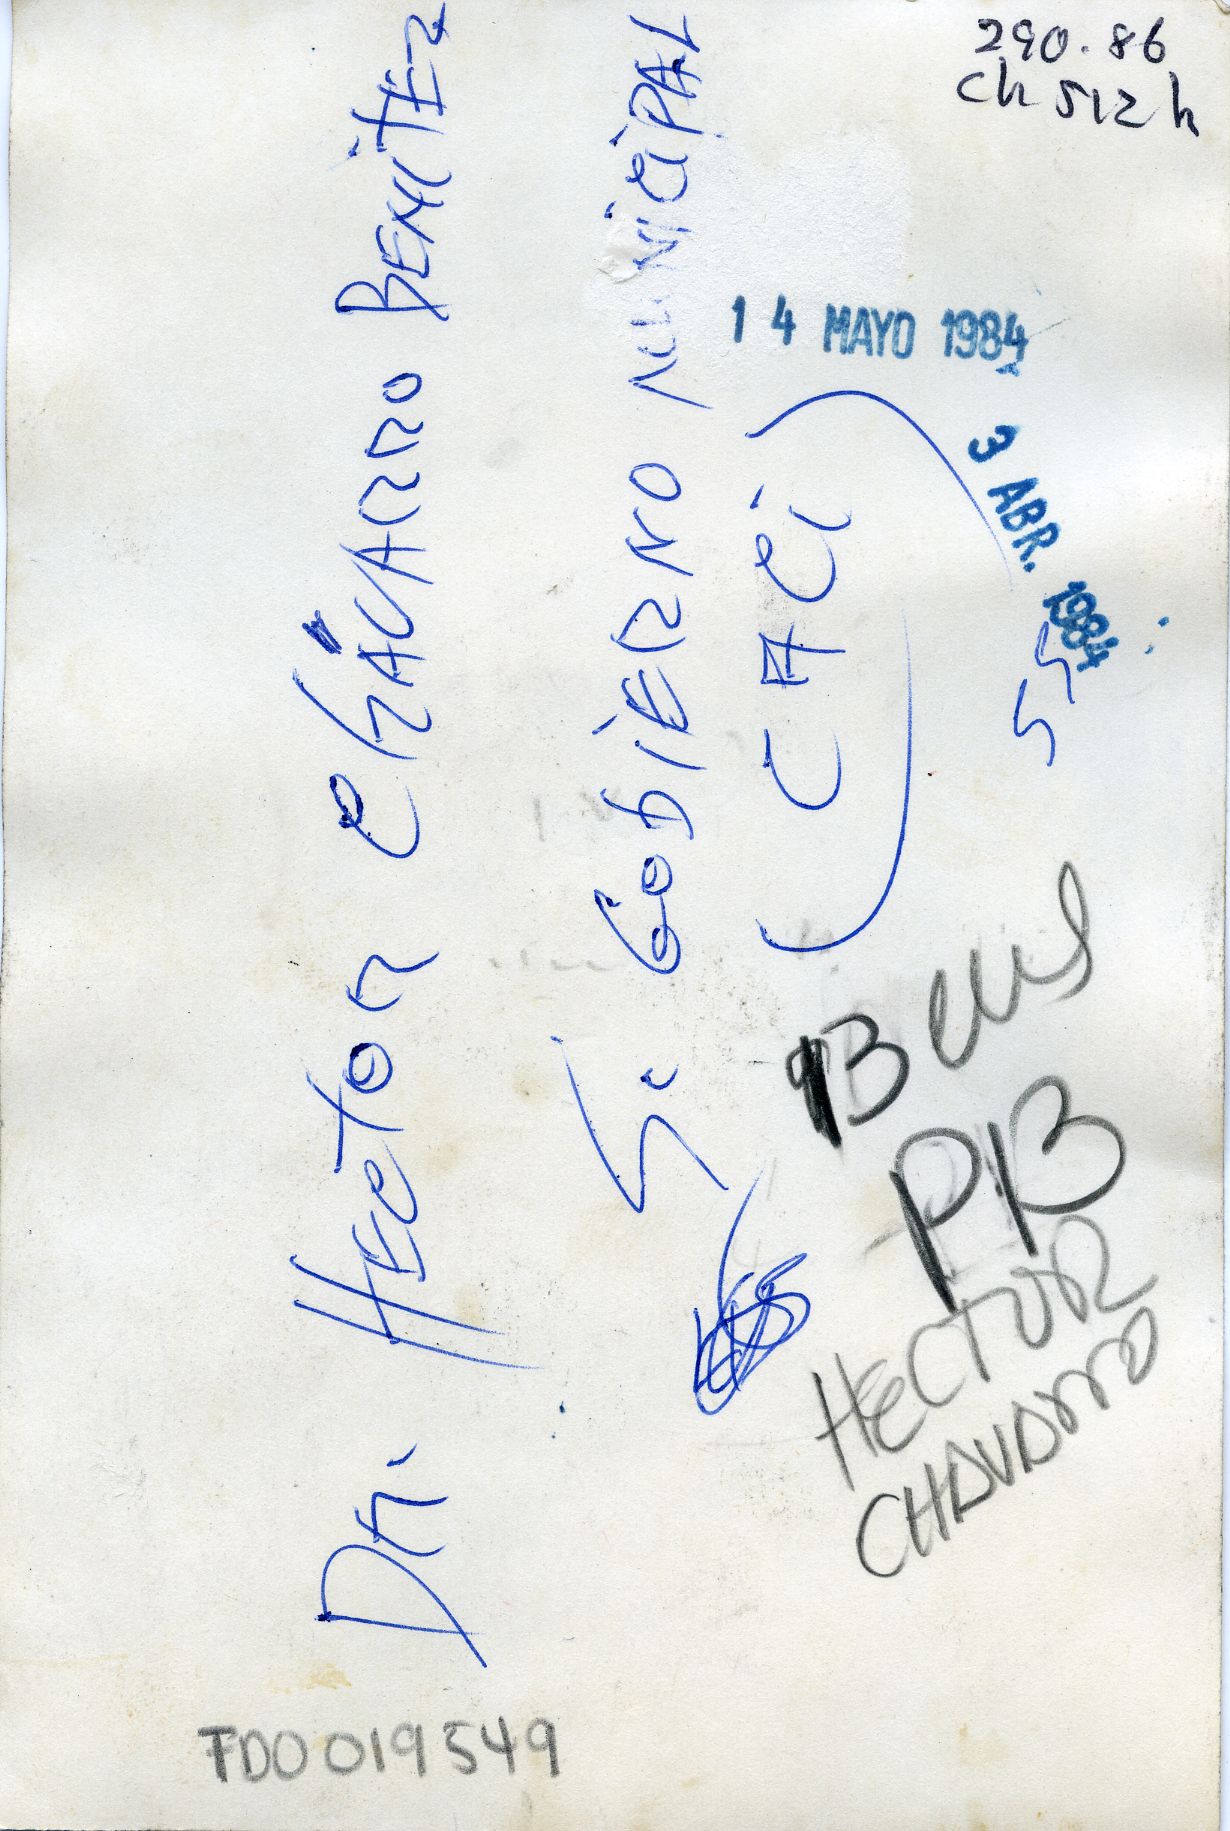 290.86
Ch 512 h
Dr. HECTOR CHAVARRO BENITEZ
S. GOBIERNO MUNICIPAL
(CALI)
14 MAYO 1984
3 ABR. 1984
55
PB
HECTOR
CHAVARRO
FD0019549